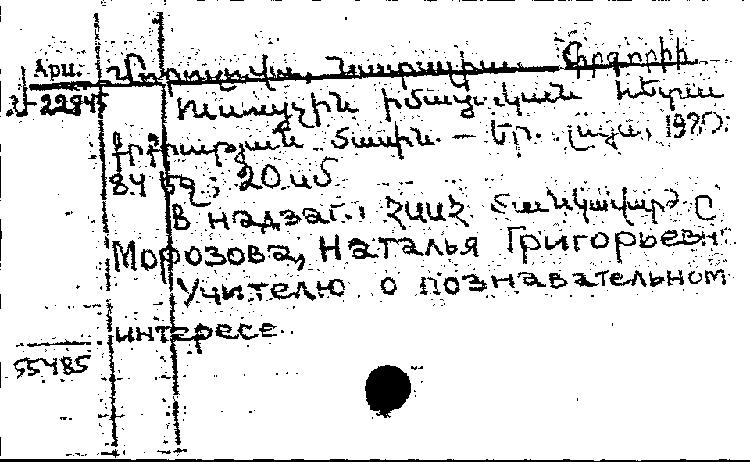 Арш. Մորոզովա, Նատալիա Գրիգորիի
22845 Ուսուցչին իմացական հետա
քրքրության մասին. — Եր. Լույս, 1980:
84 էջ; 20 սմ
В надзаг.: ՀՍՍՀ Մանկավարժ
Морозова, Наталья Григорьевн
Учителю о познавательном
интересе.
55485